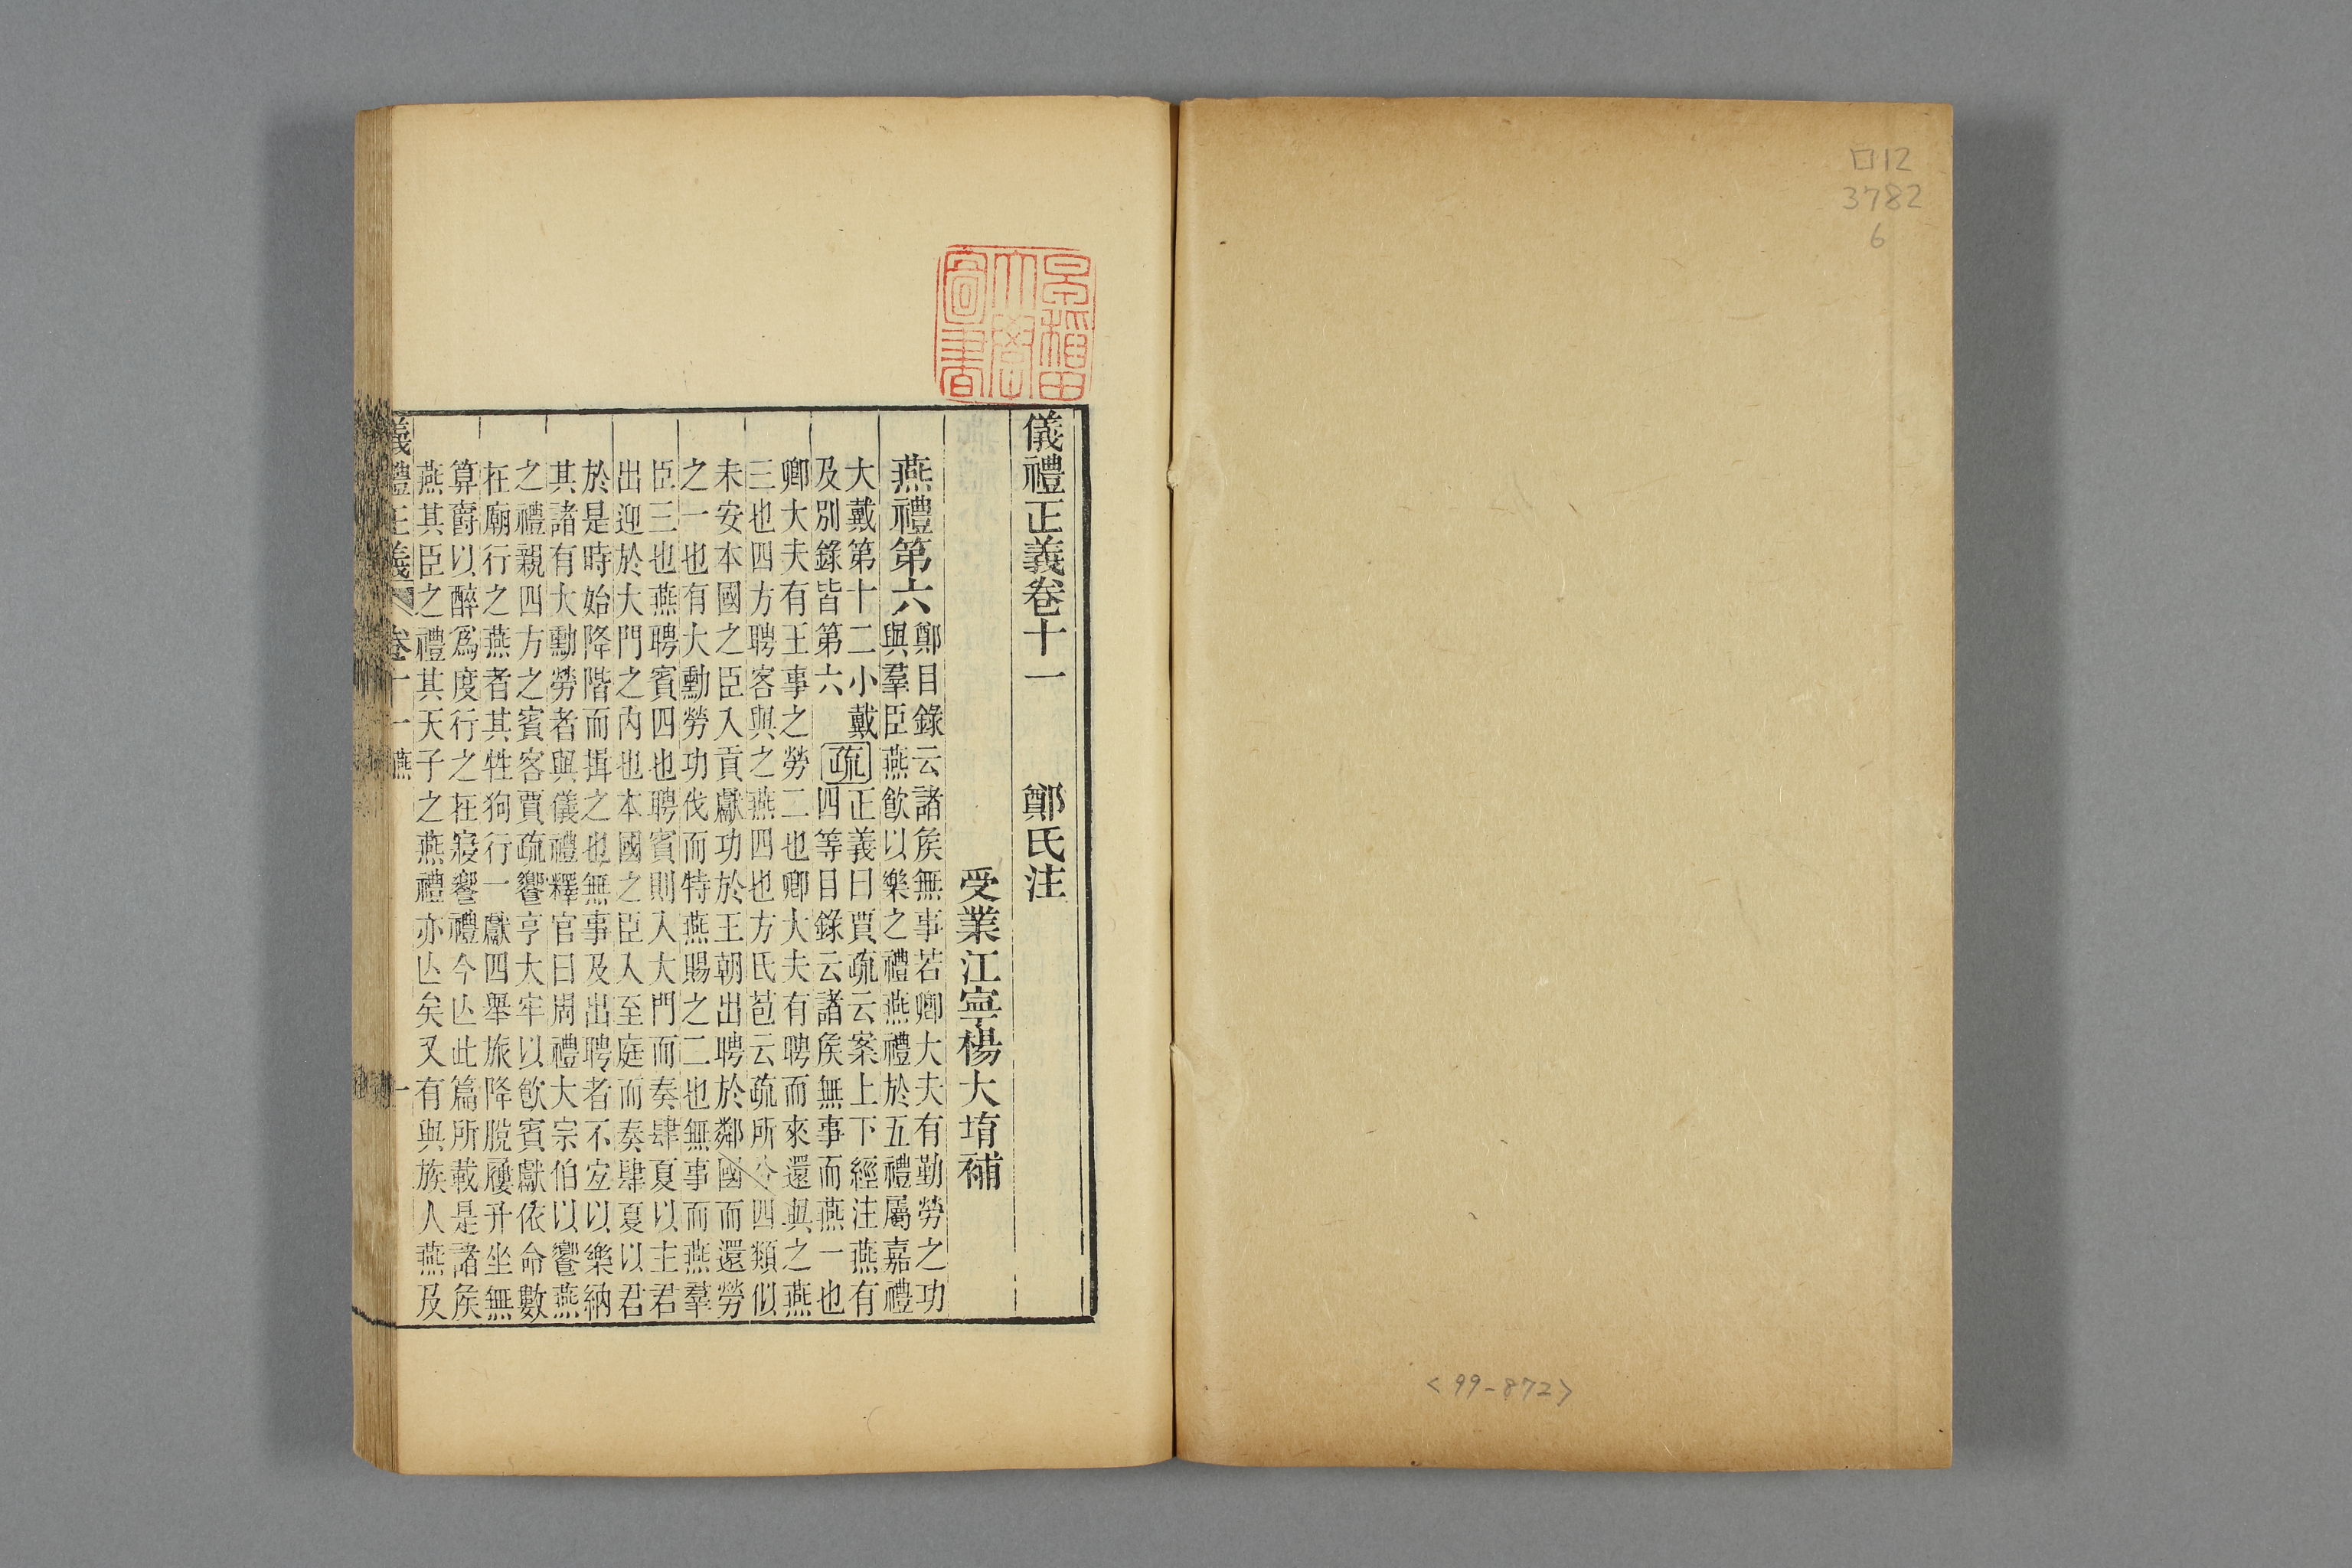 ロ12
3782
6
<99-872>
早稲田
大學
圖書
儀禮正義卷十一　鄭氏注
受業江寧楊大堉補
燕禮第六
鄭目錄云諸矦無事若卿大夫有勤勞之功
與羣臣燕飮以樂之禮燕禮於五禮屬嘉禮
大戴第十二小戴
及別錄皆第六
疏
正義曰賈疏云案上下經注燕有
四等目錄云諸矦無事而燕一也
卿大夫有王事之勞二也卿大夫有聘而來還與之燕
三也四方聘客與之燕四也方氏苞云疏所分四類似
未安本國之臣入貢獻功於王朝出聘於鄰國而還勞
之一也有大勳勞功伐而特燕賜之二也無事而燕羣
臣三也燕聘賓四也聘賓則入大門而奏肆夏以主君
出迎於大門之內也本國之臣入至庭而奏肆夏以君
於是時始降階而揖之也無事及出聘者不宐以樂納
其諸有大勳勞者與儀禮釋官曰周禮大宗伯以饗燕
之禮親四方之賓客賈疏饗亨大牢以飮賓獻依命數
在廟行之燕者其牲狗行一獻四舉旅降脫屨升坐無
算爵以醉爲度行之在寢饗禮今亾此篇所載是諸矦
燕其臣之禮其天子之燕禮亦亾矣又有與族人燕及
儀禮正義　卷十一　燕　一